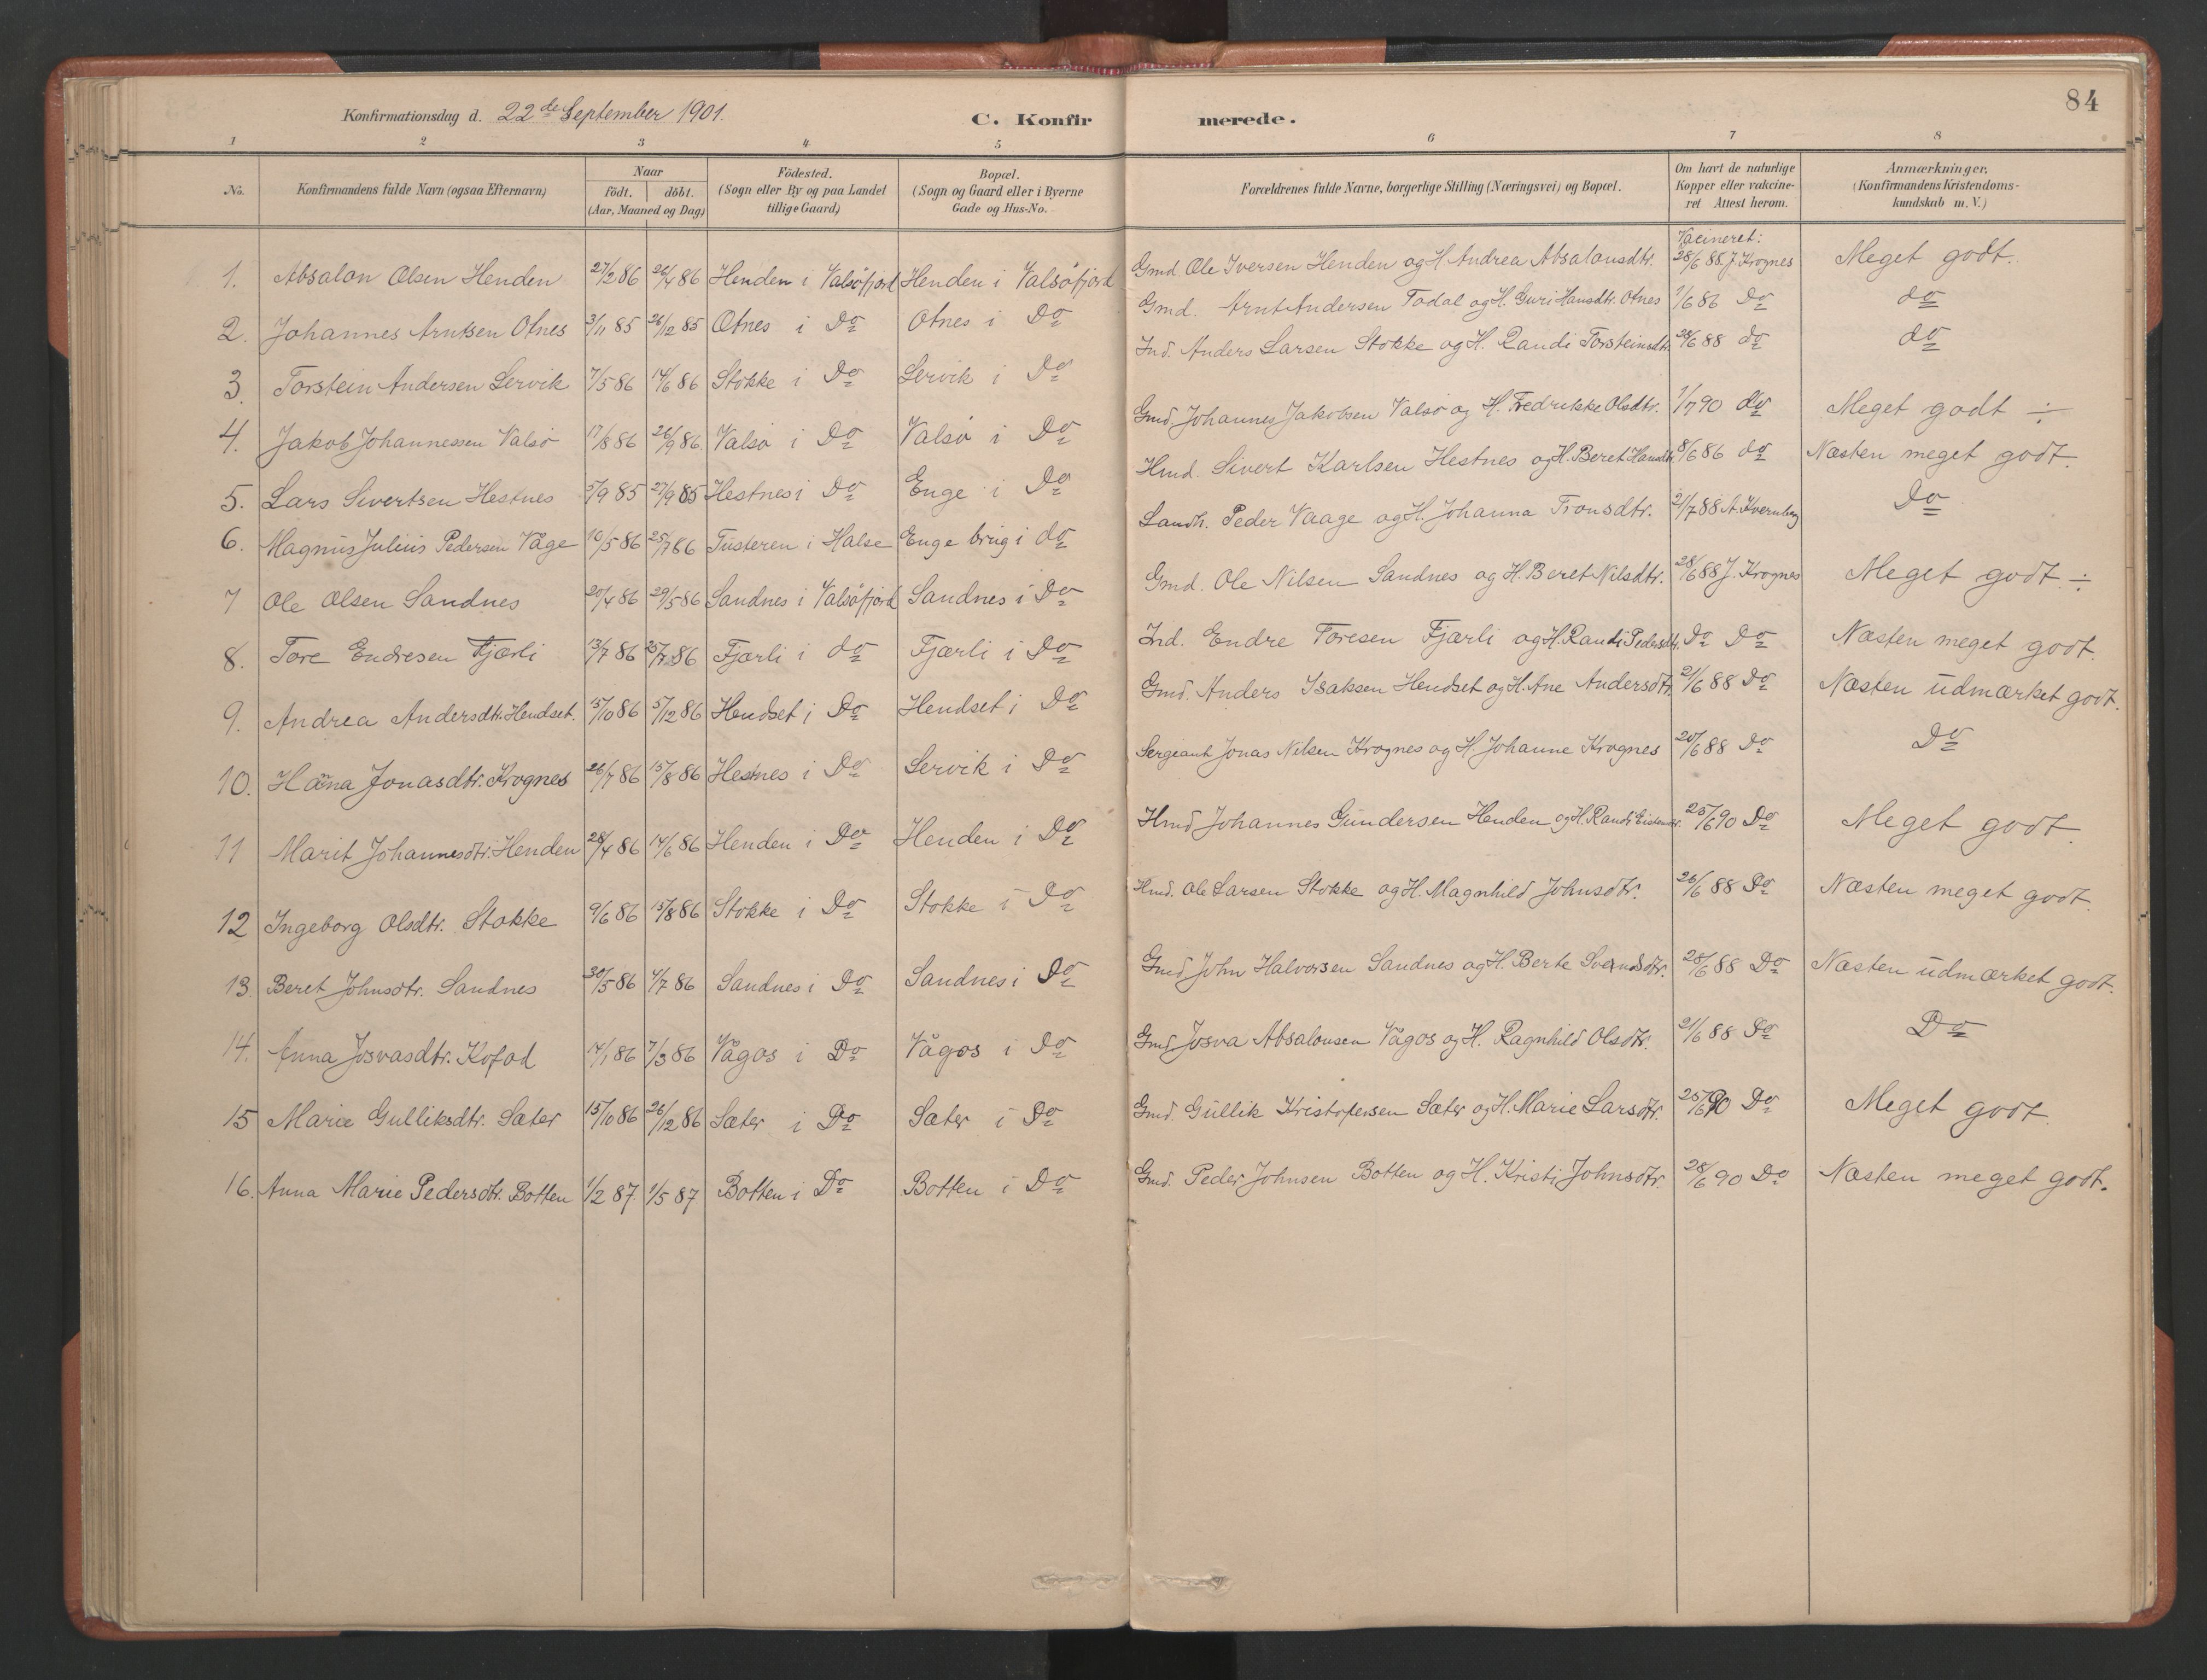 84
Konfirmationsdag d. 22de September 1901. C. Konfirmerede.
1 2 3 4 5 6 7 8
No. Konfirmandens fulde Navn (ogsaa Efternavn) Naar födt. döbt. (Aar, Maaned og Dag) Födested. (Sogn eller By og paa Landet tillige Gaard) Bopæl. (Sogn og Gaard eller i Byerne Gade og Hus-No. Forældrenes fulde Navne, borgerlige Stilling (Næringsvei) og Bopæl. Om havt de naturlige Kopper eller vakcineret Attest herom. Anmærkninger, (Konfirmandens Kristendomskundskab m. V.)
Vacineret:
1. Absalon Olsen Henden 27/2 86 26/4 86 Henden i Valsöfjord Henden i Valsöfjord Gmd. Ole Iversen Henden og H. Andrea Absalonsdtr. 28/6 88 J. Krognes Meget godt.
2. Johannes Arntsen Otnes 3/11 85 26/12 85 Otnes i Do Otnes i Do Gmd. Arnt Andersen Todal og H. Guri Hansdtr. Otnes 1/6 86 Do do
3. Torstein Andersen Servik 7/5 86 14/6 86 Stokke i Do Servik i Do Ind. Anders Larsen Stokke og H. Randi Torsteinsdtr. 28/6 88 do do
4. Jakob Johannessen Valsø 17/8 86 26/9 86 Valsø i Do Valsø i Do Gmd. Johannes Jakobsen Valsø og H. Fredrikke Olsdtr. 1/7 90 do Meget godt ÷
5. Lars Sivertsen Hestnes 5/9 85 27/9 85 Hestnes i Do Enge i Do Hmd. Sivert Karlsen Hestnes og H. Beret Hansdtr. 8/6 86 do Næsten meget godt.
6. Magnus Julius Pedersen Våge 10/5 86 25/7 86 Tusteren i Halse Enge brug i do Landh. Peder Vaage og H. Johanna Tronsdtr. 21/7 88 A. Kvernberg Do
7 Ole Olsen Sandnes 20/4 86 29/5 86 Sandnes i Valsöfjord Sandnes i Do Gmd. Ole Nilsen Sandnes og H. Beret Nilsdtr. 28/6 88 J. Krognes Meget godt ÷
8. Tore Endresen Fjærli 13/7 86 25/7 86 Fjærli i do Fjærli i Do Ind. Endre Toresen Fjærli og H. Randi Pedersdtr. Do Do Næsten meget godt.
9. Andrea Andersdtr. Hendset. 15/10 86 5/12 86 Hendset i Do Hendset i Do Gmd. Anders Isaksen Hendset og H. Ane Andersdtr. 21/6 88 Do Næsten udmærket godt.
10. Hanna Jonasdtr. Krognes 26/7 86 15/8 86 Hestnes i Do Servik i Do Sergeant Jonas Nilsen Krognes og H. Johanne Krognes 20/6 88 Do Do
11 Marit Johannesdtr. Henden 28/4 86 14/6 86 Henden i Do Henden i Do Hmd Johannes Gundersen Henden og H. Randi 25/6 90 Do Meget godt
12 Ingeborg Olsdtr. Stokke 9/6 86 15/8 86 Stokke i Do Stokke i Do Hmd. Ole Larsen Stokke og H. Magnhild Johnsdtr. 26/6 88 Do Næsten meget godt.
13. Beret Johnsdtr. Sandnes 30/5 86 4/7 86 Sandnes i Do Sandnes i Do Gmd John Halvorsen Sandnes og H. Berte Svendsdtr. 28/6 88 Do Næsten udmærket godt.
14. Anna Josvasdtr. Kofod 14/1 86 7/3 86 Vågos i Do Vågos i Do Gmd. Josva Absalonsen Vågos og H. Ragnhild Olsdtr. 21/6 88 Do Do
15 Marie Gulliksdtr. Sæter 15/10 86 26/12 86 Sæter i Do Sæter i Do Gmd. Gullik Kristofersen Sæter og H. Marie Larsdtr. 25/6 90 Do Meget godt.
16. Anna Marie Pedersdtr. Botten 1/2 87. 1/5 87 Botten i Do Botten i Do Gmd. Peder Johnsen Botten og H. Kristi Johnsdtr. 28/6 90 Do Næsten meget godt.